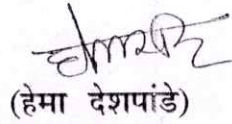 (हेमा देशपांडे)